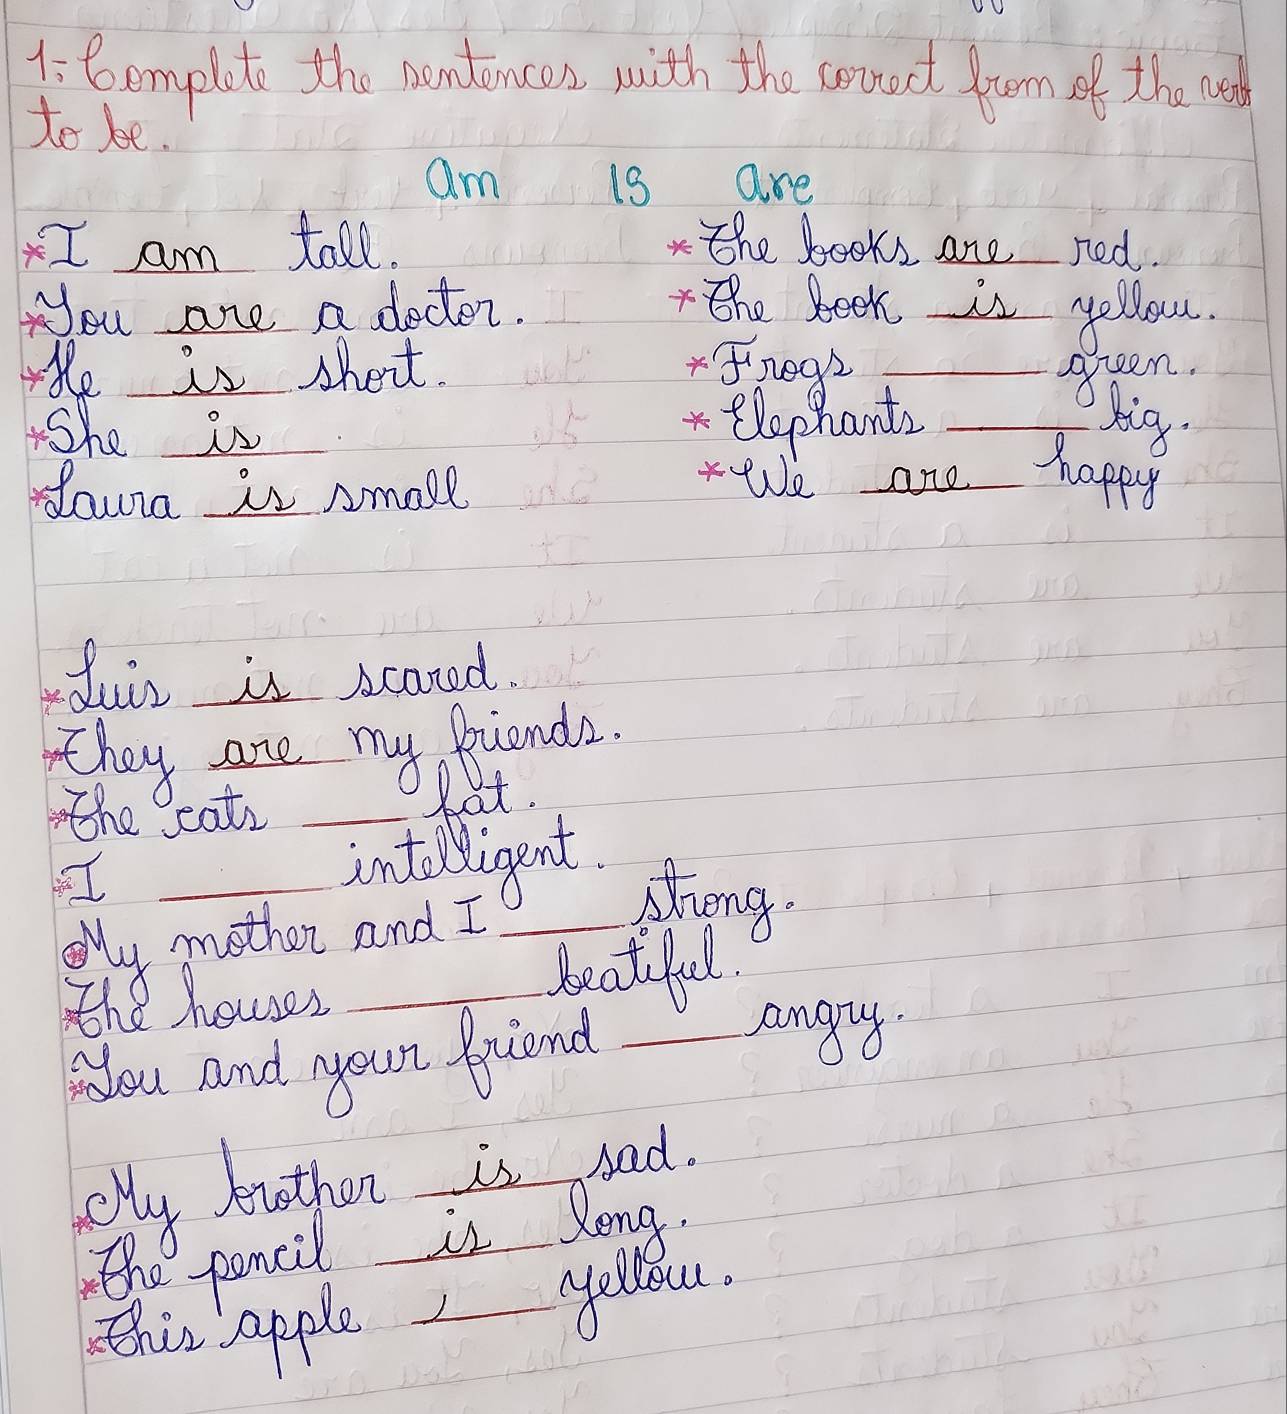 1.- Complete the sentences with the correct from of the verb
to be.
am is are
* I am tall.
* You are a doctor.
* He is short.
* She is .
* Laura is small
* The books are red.
* The book is yellow.
* Frogs ____ green.
* Elephants ____ big.
* We are happy
* Luis is scared.
* They are my friends.
* The cats ____ fat.
* I ____ intelligent.
* My mother and I ____ strong.
* The houses ____ beatiful.
* You and your friend ____ angry.
* My brother is sad.
* The pencil is long.
* This apple ____ yellow.